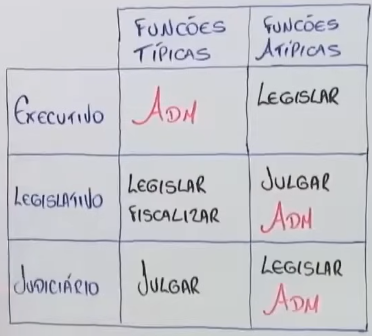 FUNCÕES
TÍPICAS
FUNCÕES
ATÍPICAS
EXECUTIVO
ADM
LEGISLAR
LEGISLATIVO
LEGISLAR
FISCALIZAR
JULGAR
ADM
JUDICIÁRIO
JULGAR
LEGISLAR
ADM